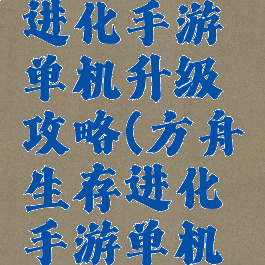 进化手游
单机升级
攻略(方舟
生存进化
手游单机